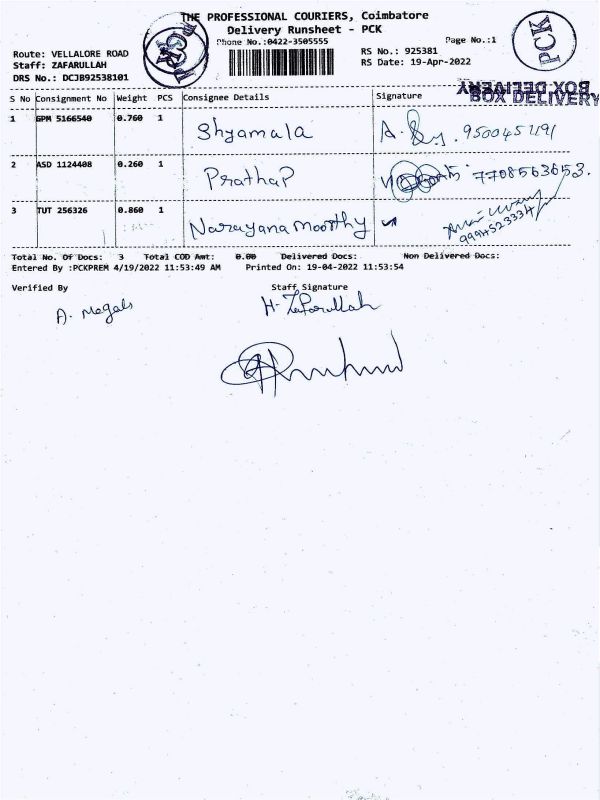 THE PROFESSIONAL COURIERS, Coimbatore
Delivery Runsheet - PCK
Phone No.:0422-3505555
Page No.:1
Route: VELLALORE ROAD
Staff: ZAFARULLAH
DRS No.: DCJB92538101
RS No.: 925381
RS Date: 19-Apr-2022
PCK
PCK
BOX DELIVERY
BOX DELIVERY
S No Consignment No Weight PCS Consignee Details Signature
1 GPM 5166540 0.760 1 Shyamala A. 9500457191
2 ASD 1124408 0.260 1 Prathap 7708563653.
3 TUT 256326 0.860 1 Narayana moorthy
9994523334
Total No. Of Docs: 3 Total COD Amt: 0.00 Delivered Docs: Non Delivered Docs:
Entered By :PCKPREM 4/19/2022 11:53:49 AM Printed On: 19-04-2022 11:53:54
Verified By Staff Signature
A. Megals H. Zafarullah